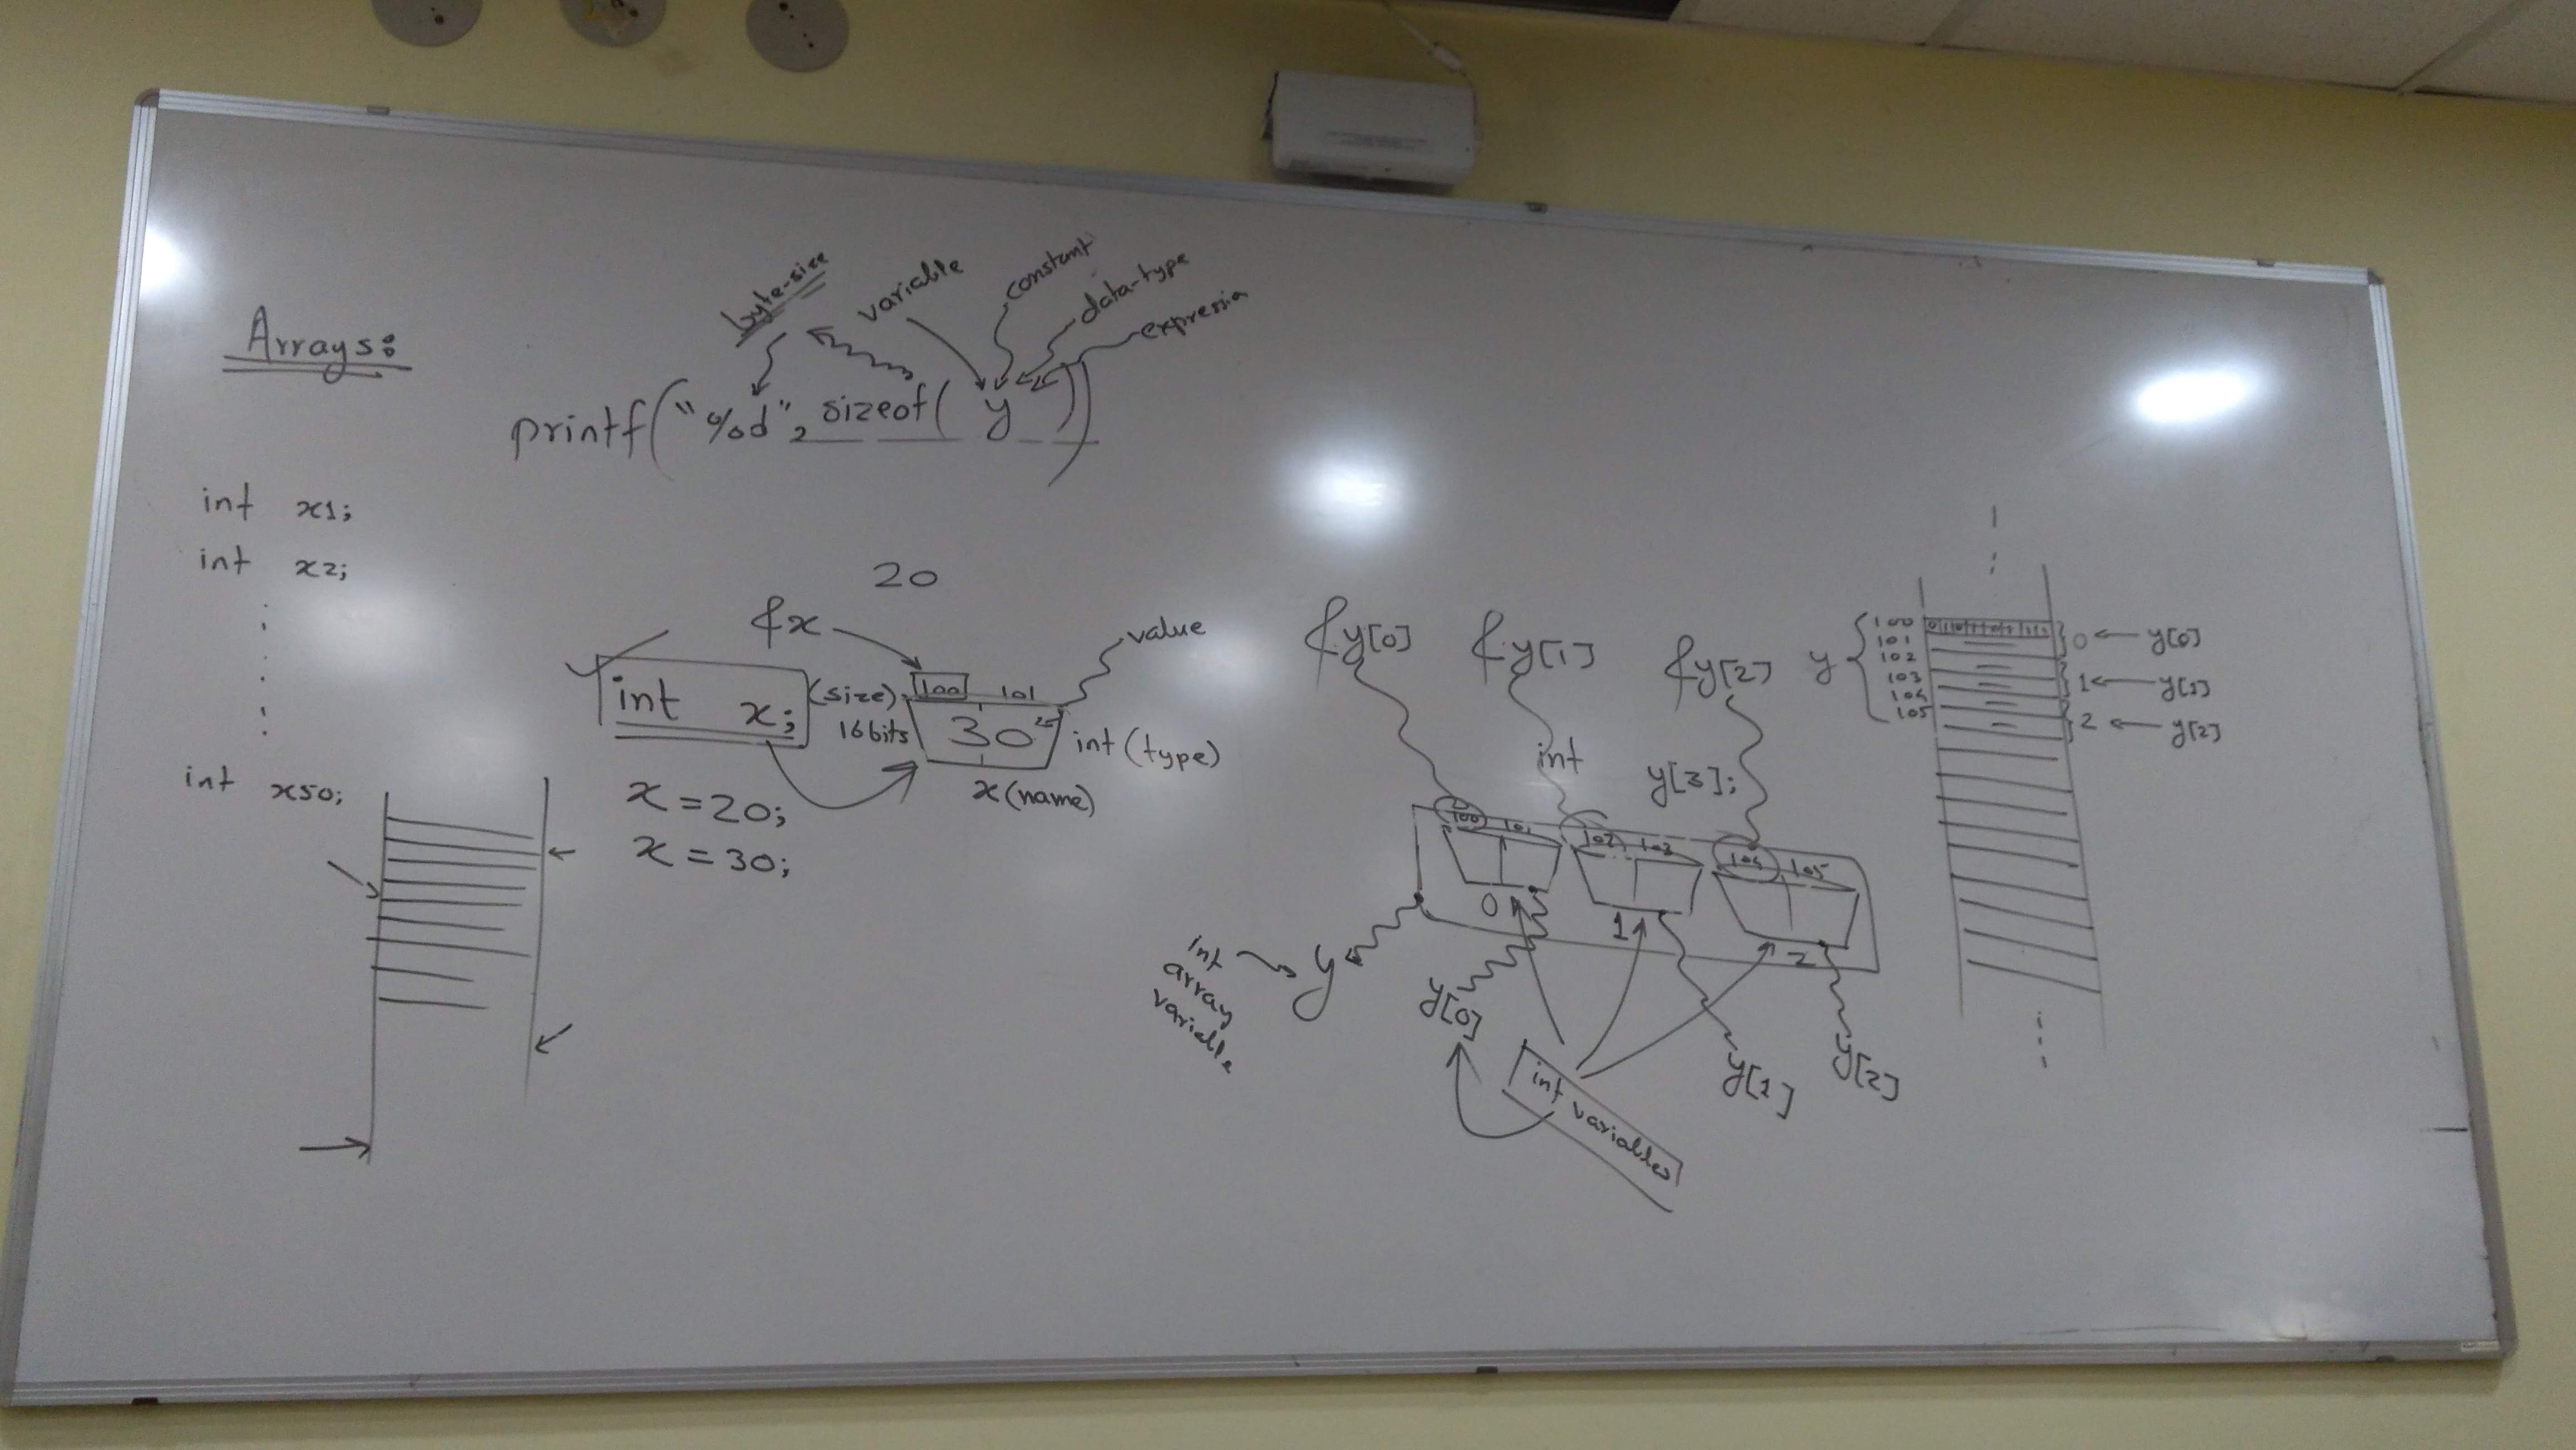 Arrays:
byte-size
variable
constant
data-type
expression
printf("%d", sizeof( y ))
int x1;
int x2;
int x50;
20
&x
value
int x;
(size)
16bits
100 101
30
int (type)
x (name)
x = 20;
x = 30;
&y[0] &y[1] &y[2]
int y[3];
100 101 102 103 104 105
0 1 2
int
array
variable
y
y[0]
y[1]
y[2]
int variables
y
100
101
102
103
104
105
0 y[0]
1 y[1]
2 y[2]